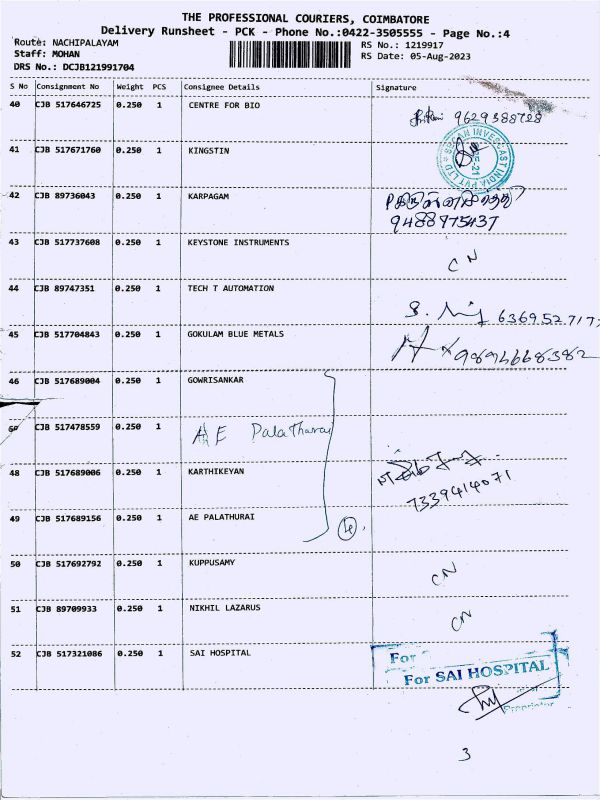 THE PROFESSIONAL COURIERS, COIMBATORE
Delivery Runsheet - PCK - Phone No.:0422-3505555 - Page No.:4
Route: NACHIPALAYAM
RS No.: 1219917
Staff: MOHAN
RS Date: 05-Aug-2023
DRS No.: DCJB121991704
S No Consignment No Weight PCS Consignee Details Signature
40 CJB 517646725 0.250 1 CENTRE FOR BIO 9629388728
41 CJB 517671760 0.250 1 KINGSTIN
INVESCAST INDIA PVT LTD
42 CJB 89736043 0.250 1 KARPAGAM
9488775437
43 CJB 517737608 0.250 1 KEYSTONE INSTRUMENTS CN
44 CJB 89747351 0.250 1 TECH T AUTOMATION
636952717
45 CJB 517704843 0.250 1 GOKULAM BLUE METALS
46 CJB 517689004 0.250 1 GOWRISANKAR
CJB 517478559 0.250 1 AE Palathurai
48 CJB 517689006 0.250 1 KARTHIKEYAN
7339414071
49 CJB 517689156 0.250 1 AE PALATHURAI
4
50 CJB 517692792 0.250 1 KUPPUSAMY CN
51 CJB 89709933 0.250 1 NIKHIL LAZARUS CN
52 CJB 517321086 0.250 1 SAI HOSPITAL
For
For SAI HOSPITAL
Proprietor
3